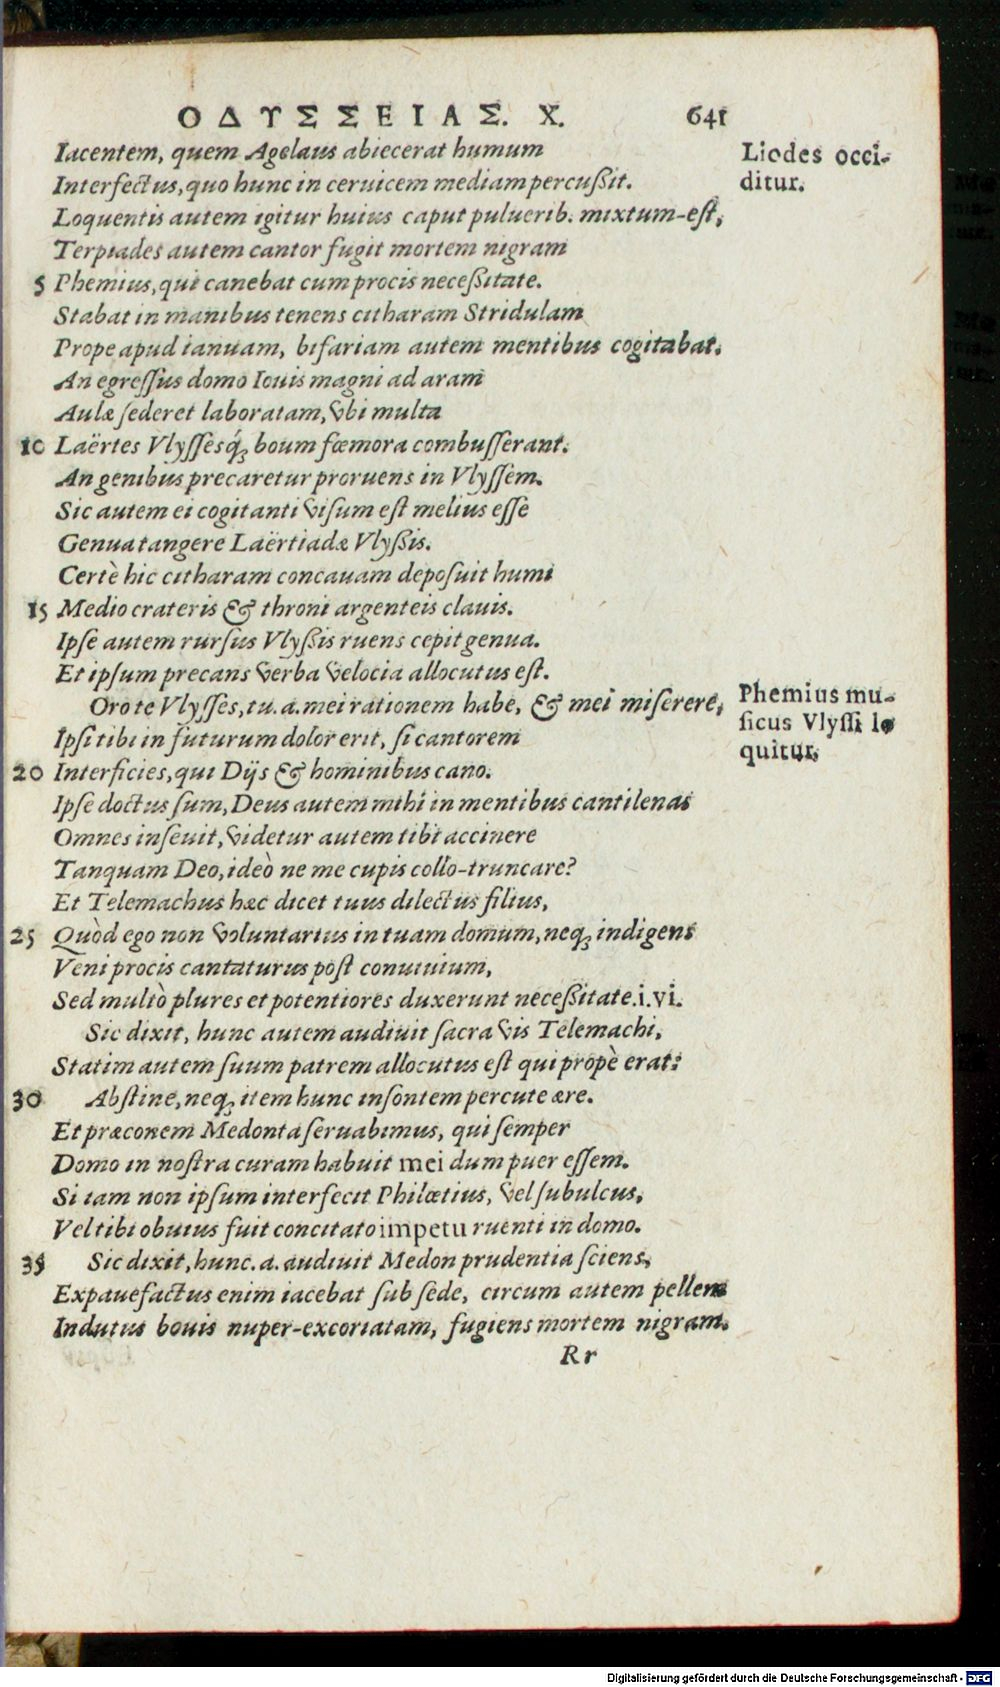 ΟΔΥΣΣΕΙΑΣ. Χ. 641
Iacentem, quem Agelaus abiecerat humum
Interfectus, quo hunc in ceruicem mediam percußit.
Liodes occi-
ditur.
Loquentis autem igitur huius caput puluerib. mixtum-est,
Terpiades autem cantor fugit mortem nigram
5 Phemius, qui canebat cum procis neceßitate.
Stabat in manibus tenens citharam Stridulam
Prope apud ianuam, bifariam autem mentibus cogitabat.
An egressus domo Iouis magni ad aram
Aulæ sederet laboratam, vbi multa
10 Laërtes Vlyssesq́; boum fœmora combusserant.
An genibus precaretur proruens in Vlyssem.
Sic autem ei cogitanti visum est melius esse
Genua tangere Laërtiadæ Vlyßis.
Certè hic citharam concauam deposuit humi
15 Medio crateris & throni argenteis clauis.
Ipse autem rursus Vlyßis ruens cepit genua.
Et ipsum precans verba velocia allocutus est.
Oro te Vlysses, tu. a. mei rationem habe, & mei miserere,
Phemius mu-
sicus Vlyssi lo
quitur.
Ipsi tibi in futurum dolor erit, si cantorem
20 Interficies, qui Dijs & hominibus cano.
Ipse doctus sum, Deus autem mihi in mentibus cantilenas
Omnes inseuit, videtur autem tibi accinere
Tanquam Deo, ideò ne me cupis collo-truncare?
Et Telemachus hæc dicet tuus dilectus filius,
25 Quòd ego non voluntarius in tuam domum, neq; indigens
Veni procis cantaturus post conuiuium,
Sed multò plures et potentiores duxerunt neceßitate.i.vi.
Sic dixit, hunc autem audiuit sacra vis Telemachi,
Statim autem suum patrem allocutus est qui propè erat:
30 Abstine, neq; item hunc insontem percute ære.
Et præconem Medonta seruabimus, qui semper
Domo in nostra curam habuit mei dum puer essem.
Si iam non ipsum interfecit Philœtius, vel subulcus,
Vel tibi obuius fuit concitato impetu ruenti in domo.
35 Sic dixit, hunc. a. audiuit Medon prudentia sciens,
Expauefactus enim iacebat sub sede, circum autem pellem
Indutus bouis nuper-excoriatam, fugiens mortem nigram.
Rr
Digitalisierung gefördert durch die Deutsche Forschungsgemeinschaft - DFG